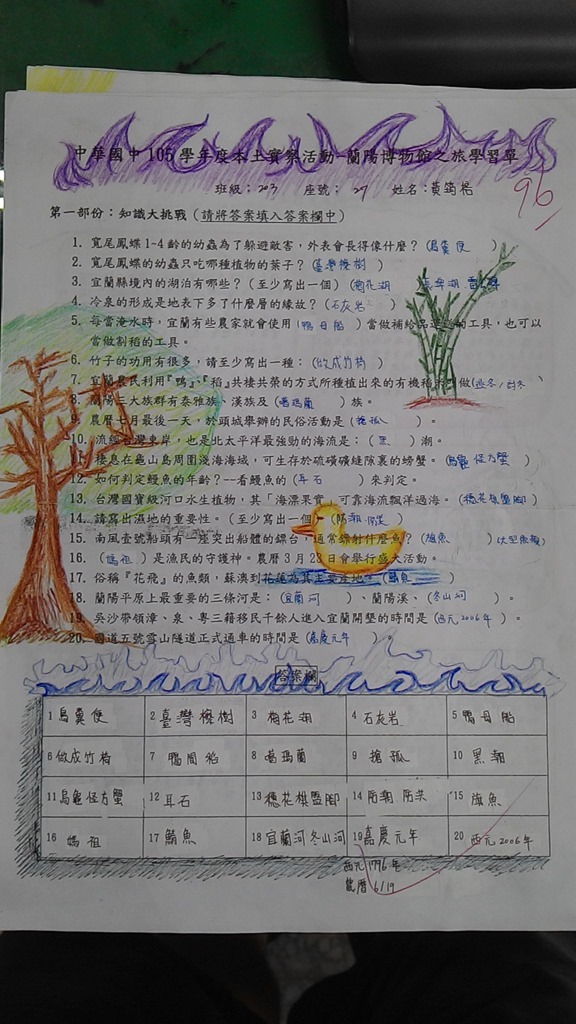 中華國中105學年度本土實察活動-蘭陽博物館之旅學習單
班級：203 座號：27 姓名：黃筠
96
第一部份：知識大挑戰（請將答案填入答案欄中）
1. 寬尾鳳蝶1-4齡的幼蟲為了躲避敵害，外表會長得像什麼？（鳥糞便）
2. 寬尾鳳蝶的幼蟲只吃哪種植物的葉子？（臺灣檫樹）
3. 宜蘭縣境內的湖泊有哪些？（至少寫出一個）（梅花湖
4. 冷泉的形成是地表下多了什麼層的緣故？（石灰岩）
5. 每當淹水時，宜蘭有些農家就會使用（鴨母船）當做補給品運送的工具，也可以
當做割稻的工具。
6. 竹子的功用有很多，請至少寫出一種：（做成竹椅）
7. 宜蘭農民利用『鴨』、『稻』共棲共榮的方式所種植出來的有機稻米叫做（
8. 蘭陽三大族群有泰雅族、漢族及（噶瑪蘭）族。
9. 農曆七月最後一天，於頭城舉辦的民俗活動是（搶孤）。
10. 流經台灣東岸，也是北太平洋最強勁的海流是：（黑）潮。
11. 棲息在龜山島周圍淺海海域，可生存於硫磺礦縫隙裏的螃蟹。（烏龜怪方蟹）
12. 如何判定鰻魚的年齡？--看鰻魚的（耳石）來判定。
13. 台灣國寶級河口水生植物，其「海漂果實」可靠海流飄洋過海。（穗花棋盤腳）
14. 請寫出濕地的重要性。（至少寫出一個）（防潮 防洪）
15. 南風壹號船頭有一座突出船體的鏢台，通常鏢射什麼魚？（旗魚）
16. （媽祖）是漁民的守護神。農曆3月23日會舉行盛大活動。
17. 俗稱『花飛』的魚類，蘇澳到花蓮為其主要產地。（鯖魚）
18. 蘭陽平原上最重要的三條河是：（宜蘭河）、蘭陽溪、（冬山河）。
19. 吳沙帶領漳、泉、粵三籍移民千餘人進入宜蘭開墾的時間是（西元2006年）。
20. 國道五號雪山隧道正式通車的時間是（嘉慶元年）。
答案欄
1 鳥糞便 2 臺灣檫樹 3 梅花湖 4 石灰岩 5 鴨母船
6 做成竹椅 7 鴨間稻 8 噶瑪蘭 9 搶孤 10 黑潮
11 烏龜怪方蟹 12 耳石 13 穗花棋盤腳 14 防潮 防洪 15 旗魚
16 媽祖 17 鯖魚 18 宜蘭河 冬山河 19 嘉慶元年 20 西元2006年
西元1796年
農曆 6/19